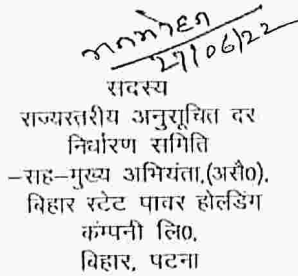 27/06/22
सदस्य
राज्यस्तरीय अनुसूचित दर
निर्धारण समिति
-सह-मुख्य अभियंता,(असै०),
बिहार स्टेट पावर होल्डिंग
कंम्पनी लि०,
बिहार, पटना